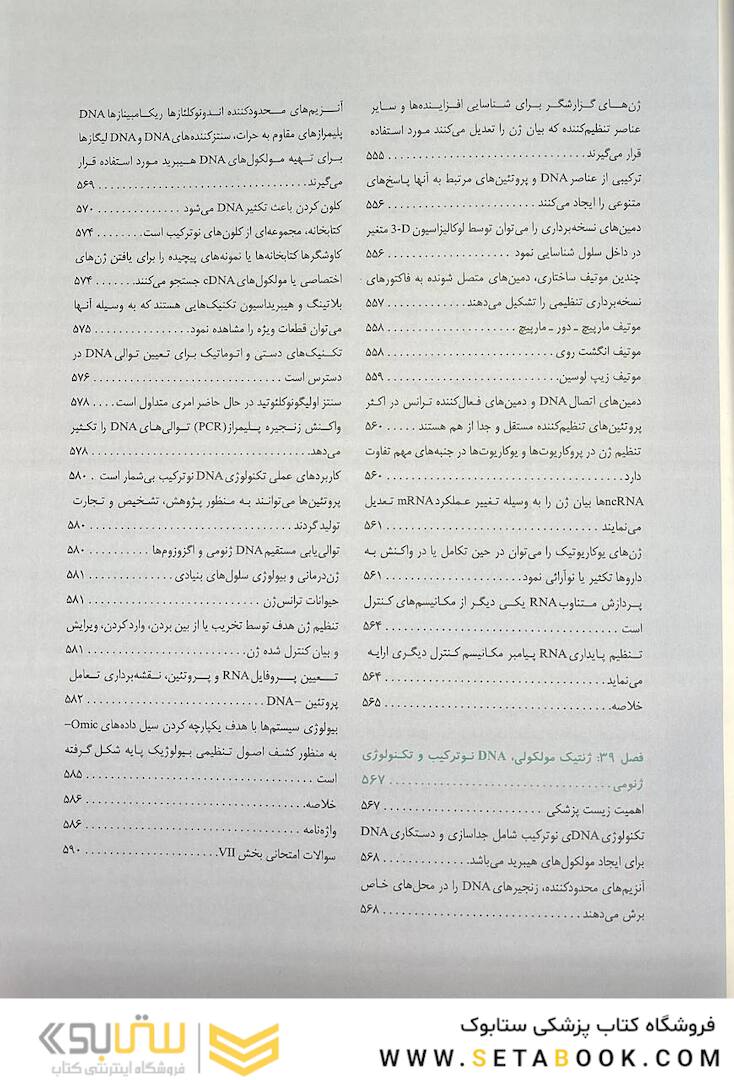 ژن‌های گزارشگر برای شناسایی افزاینده‌ها و سایر
عناصر تنظیم‌کننده که بیان ژن را تعدیل می‌کنند مورد استفاده
قرار می‌گیرند ................................ ۵۵۵
ترکیبی از عناصر DNA و پروتئین‌های مرتبط به آنها پاسخ‌های
متنوعی را ایجاد می‌کنند ........................ ۵۵۶
دمین‌های نسخه‌برداری را می‌توان توسط لوکالیزاسیون 3-D متغیر
در داخل سلول شناسایی نمود .................. ۵۵۶
چندین موتیف ساختاری، دمین‌های متصل شونده به فاکتورهای
نسخه‌برداری تنظیمی را تشکیل می‌دهند ............. ۵۵۷
موتیف مارپیچ ـ دور ـ مارپیچ .................... ۵۵۸
موتیف انگشت روی .......................... ۵۵۸
موتیف زیپ لوسین .......................... ۵۵۹
دمین‌های اتصال DNA و دمین‌های فعال‌کننده ترانس در اکثر
پروتئین‌های تنظیم‌کننده مستقل و جدا از هم هستند ..... ۵۶۰
تنظیم ژن در پروکاریوت‌ها و یوکاریوت‌ها در جنبه‌های مهم تفاوت
دارد ....................................... ۵۶۰
ncRNAها بیان ژن را به وسیله تغییر عملکرد mRNA تعدیل
می‌نمایند .................................... ۵۶۱
ژن‌های یوکاریوتیک را می‌توان در حین تکامل یا در واکنش به
داروها تکثیر یا نوآرائی نمود ...................... ۵۶۱
پردازش متناوب RNA یکی دیگر از مکانیسم‌های کنترل
است ....................................... ۵۶۴
تنظیم پایداری RNA پیامبر مکانیسم کنترل دیگری ارایه
می‌نماید ..................................... ۵۶۴
خلاصه ...................................... ۵۶۵
فصل ۳۹: ژنتیک مولکولی، DNA نوترکیب و تکنولوژی
ژنومی ..................................... ۵۶۷
اهمیت زیست پزشکی ........................... ۵۶۷
تکنولوژی DNAی نوترکیب شامل جداسازی و دستکاری DNA
برای ایجاد مولکول‌های هیبرید می‌باشد ............. ۵۶۸
آنزیم‌های محدودکننده، زنجیرهای DNA را در محل‌های خاص
برش می‌دهند ................................ ۵۶۸
آنزیم‌های محدودکننده اندونوکلئازها ریکامبینازها DNA
پلیمرازهای مقاوم به حرات، سنتزکننده‌های DNA و DNA لیگازها
برای تهیه مولکول‌های DNA هیبرید مورد استفاده قرار
می‌گیرند .................................. ۵۶۹
کلون کردن باعث تکثیر DNA می‌شود .............. ۵۷۰
کتابخانه، مجموعه‌ای از کلون‌های نوترکیب است ........ ۵۷۴
کاوشگرها کتابخانه‌ها یا نمونه‌های پیچیده را برای یافتن ژن‌های
اختصاصی یا مولکول‌های cDNA جستجو می‌کنند ....... ۵۷۴
بلاتینگ و هیبریداسیون تکنیک‌هایی هستند که به وسیله آنها
می‌توان قطعات ویژه را مشاهده نمود ................ ۵۷۵
تکنیک‌های دستی و اتوماتیک برای تعیین توالی DNA در
دسترس است ............................... ۵۷۶
سنتز اولیگونوکلئوتید در حال حاضر امری متداول است .... ۵۷۸
واکنش زنجیره پلیمراز (PCR) توالی‌های DNA را تکثیر
می‌دهد ..................................... ۵۷۸
کاربردهای عملی تکنولوژی DNA نوترکیب بی‌شمار است . ۵۸۰
پروتئین‌ها می‌توانند به منظور پژوهش، تشخیص و تجارت
تولید گردند ................................. ۵۸۰
توالی‌یابی مستقیم DNA ژنومی و اگزوزوم‌ها .......... ۵۸۰
ژن‌درمانی و بیولوژی سلول‌های بنیادی .............. ۵۸۱
حیوانات ترانس‌ژن ............................ ۵۸۱
تنظیم ژن هدف توسط تخریب یا از بین بردن، وارد کردن، ویرایش
و بیان کنترل شده ژن .......................... ۵۸۱
تعیین پروفایل RNA و پروتئین، نقشه‌برداری تعامل
پروتئین –DNA ............................ ۵۸۲
بیولوژی سیستم‌ها با هدف یکپارچه کردن سیل داده‌های Omic–
به منظور کشف اصول تنظیمی بیولوژیک پایه شکل گرفته
است ...................................... ۵۸۵
خلاصه ..................................... ۵۸۶
واژه‌نامه ..................................... ۵۸۶
سوالات امتحانی بخش VII ...................... ۵۹۰
فروشگاه کتاب پزشکی ستابوک
WWW.SETABOOK.COM
ستابوک
فروشگاه اینترنتی کتاب